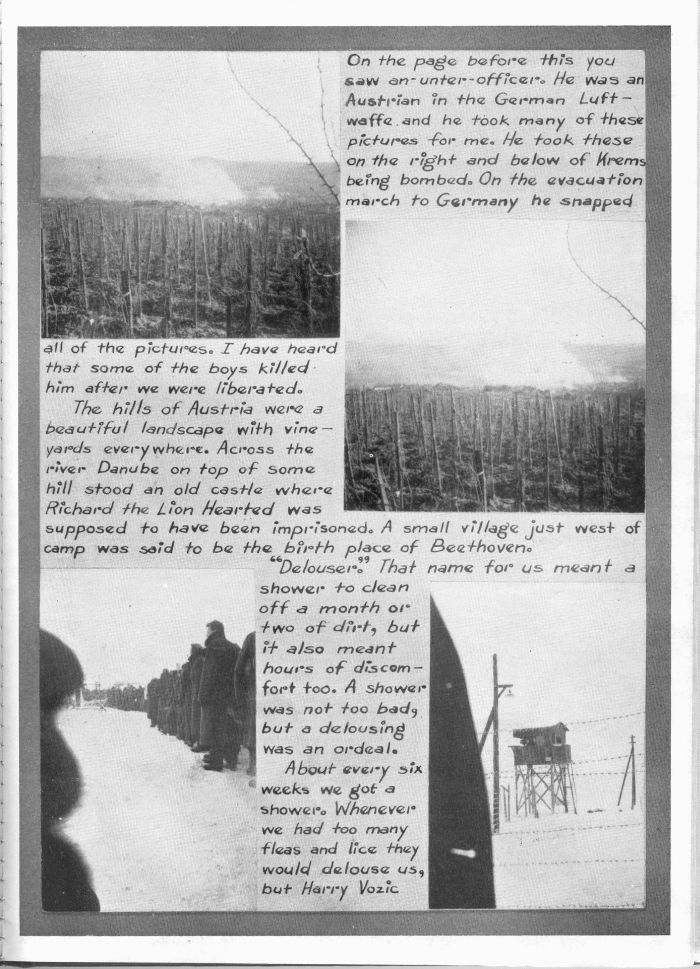 On the page before this you
saw an-unter-officer. He was an
Austrian in the German Luft-
waffe and he took many of these
pictures for me. He took these
on the right and below of Krems
being bombed. On the evacuation
march to Germany he snapped
all of the pictures. I have heard
that some of the boys killed
him after we were liberated.
The hills of Austria were a
beautiful landscape with vine-
yards everywhere. Across the
river Danube on top of some
hill stood an old castle where
Richard the Lion Hearted was
supposed to have been imprisoned. A small village just west of
camp was said to be the birth place of Beethoven.
"Delouser." That name for us meant a
shower to clean
off a month or
two of dirt, but
it also meant
hours of discom-
fort too. A shower
was not too bad,
but a delousing
was an ordeal.
About every six
weeks we got a
shower. Whenever
we had too many
fleas and lice they
would delouse us,
but Harry Vozic